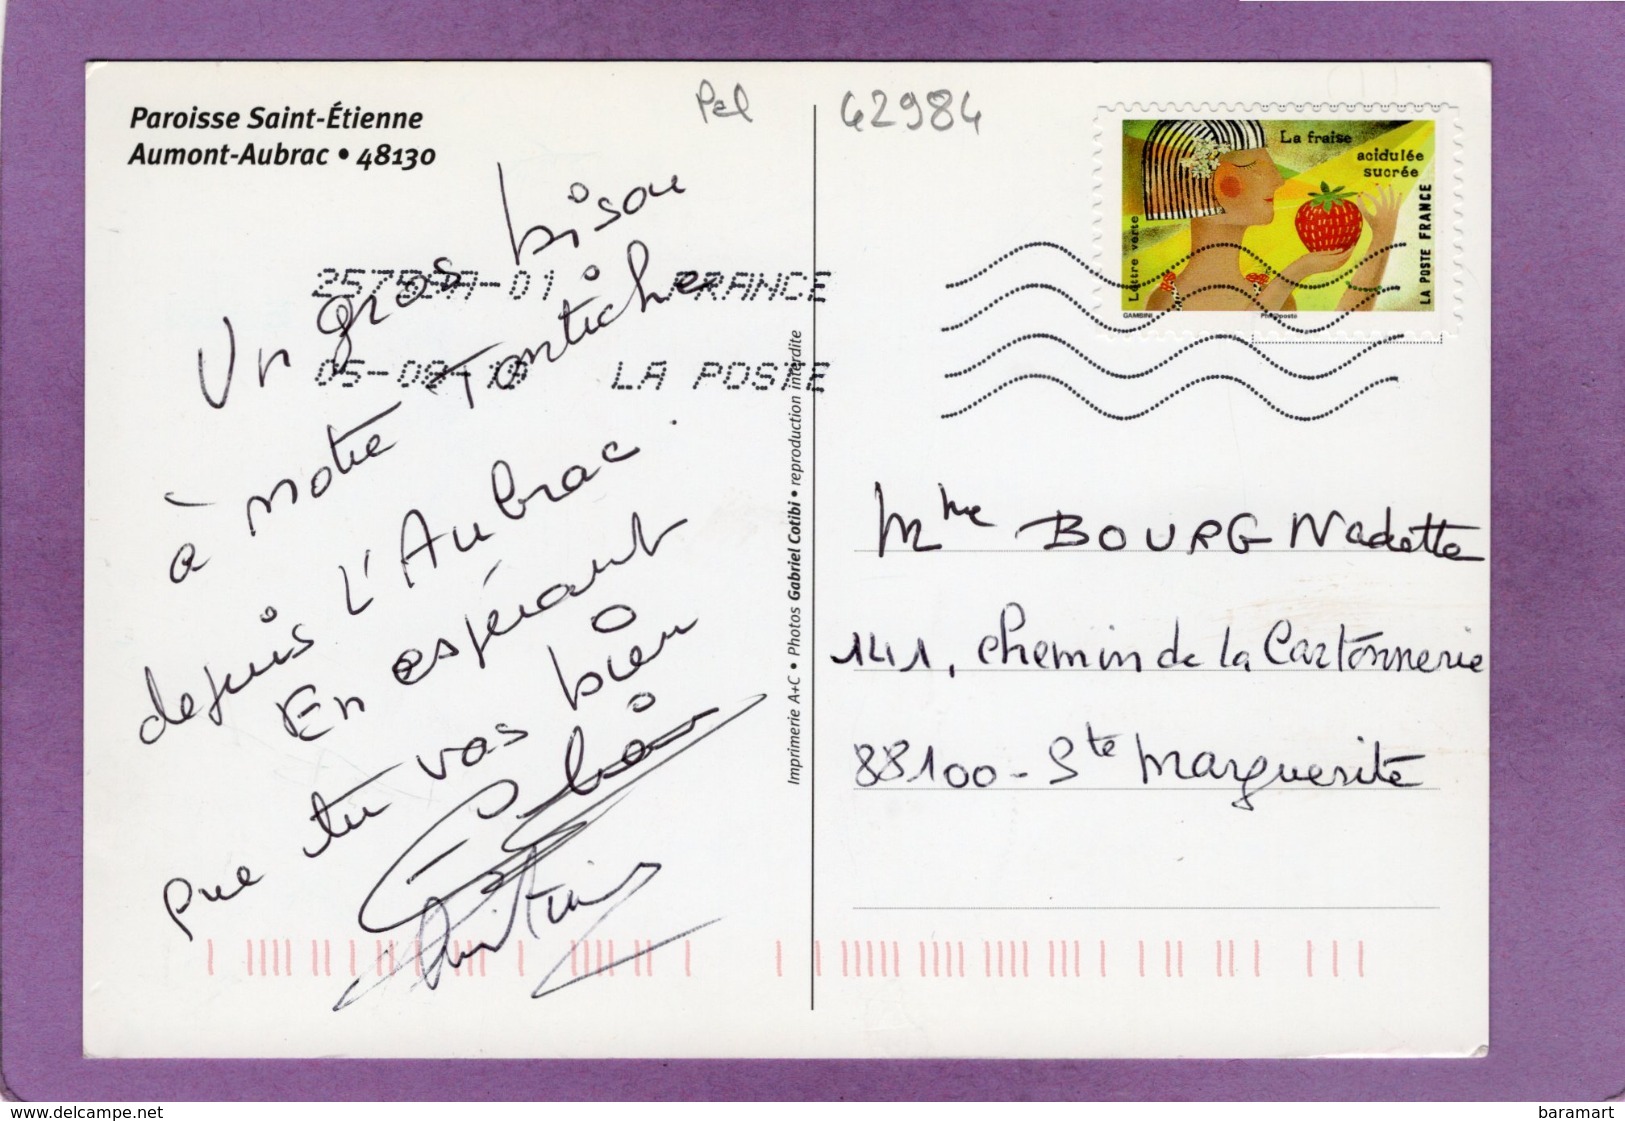 Paroisse Saint-Étienne
Aumont-Aubrac • 48130
Pal
42984
La fraise
acidulée
sucrée
Lettre verte
LA POSTE FRANCE
GAMBINI
Phil@poste
FRANCE
05-08- LA POSTE
Un gros bisou
à notre Tontiche
depuis l'Aubrac.
En espérant
que tu vas bien
Imprimerie A+C • Photos Gabriel Cotibi • reproduction interdite
Mme BOURG Nadette
141, chemin de la Cartonnerie
88100 - Ste Marguerite
www.delcampe.net
baramart